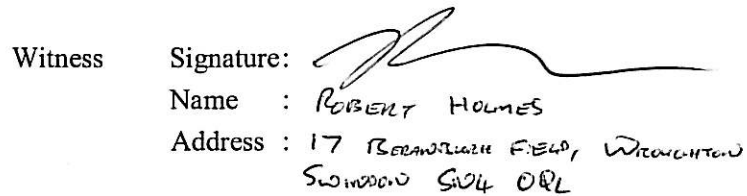 Witness Signature:
Name : ROBERT HOLMES
Address : 17 BERANBURH FIELD, WROUGHTON
SWINDON SN4 0QL